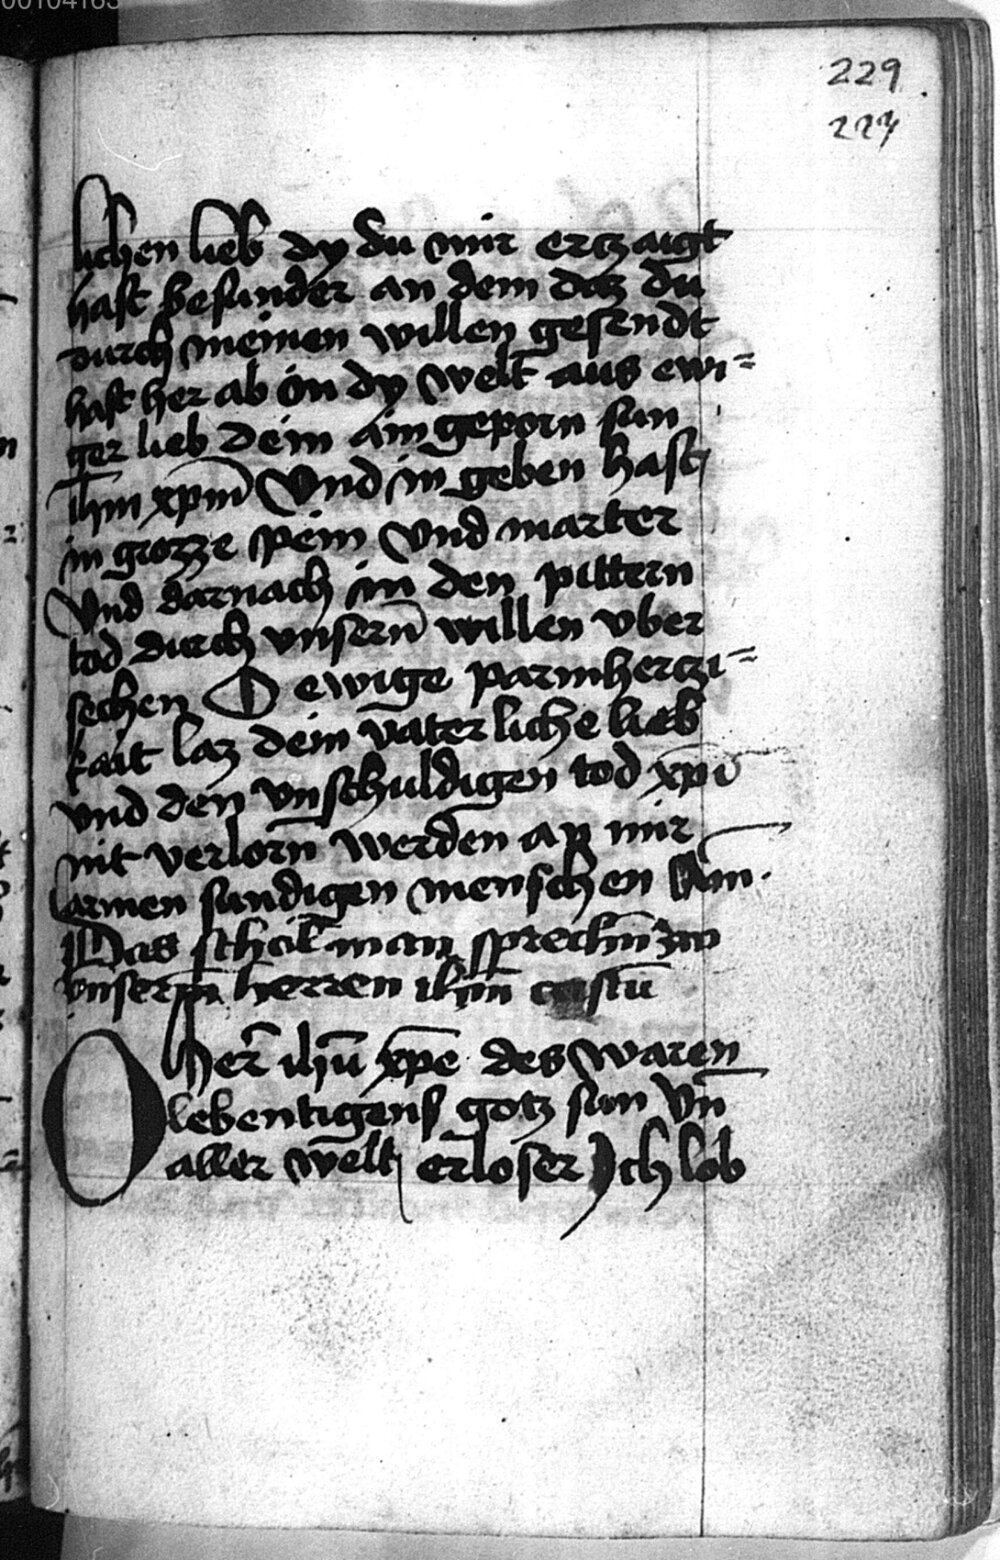 00104163
229
227
lichen lieb dy du mir ertzaigt
hast besunder an dem daz du
durch meinen willen gesendt
hast her ab in dy welt aus ewi=
ger lieb dein ain geporn sun
ihm xpm Vnd in geben hast
in grozze pein Vnd marter
Vnd darnach in den pittern
tod durch vnsern willen vber
sechen O ewige parmhertzi=
kait laz dein vaterliche lieb
vnd den vnschuldigen tod xpi
nit verlorn werden an mir
armen sundigen menschen Am̄.
Das schol man sprechn̄ zw
vnserm herren ihm̄ cristū
O her ihū xpe des waren
lebentigens gotz sun Vn̄
aller welt erloser Ich lob